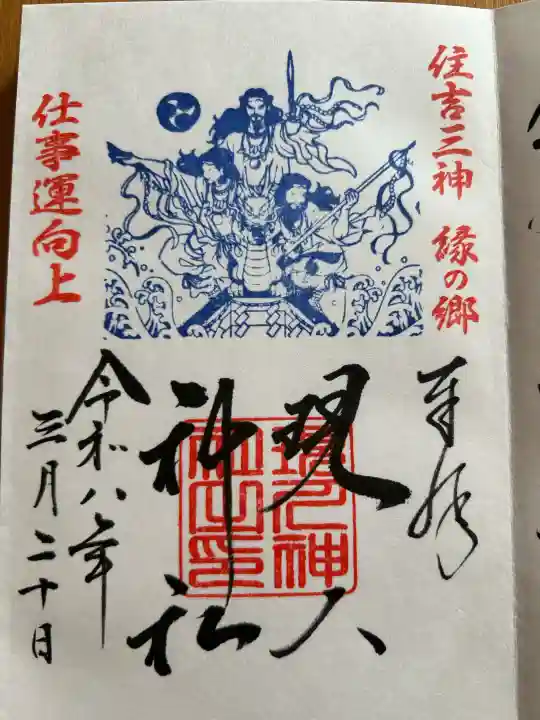 住吉三神 縁の郷
仕事運向上
奉拝
現人
神社
現人神
社之印
令和八年
三月二十日